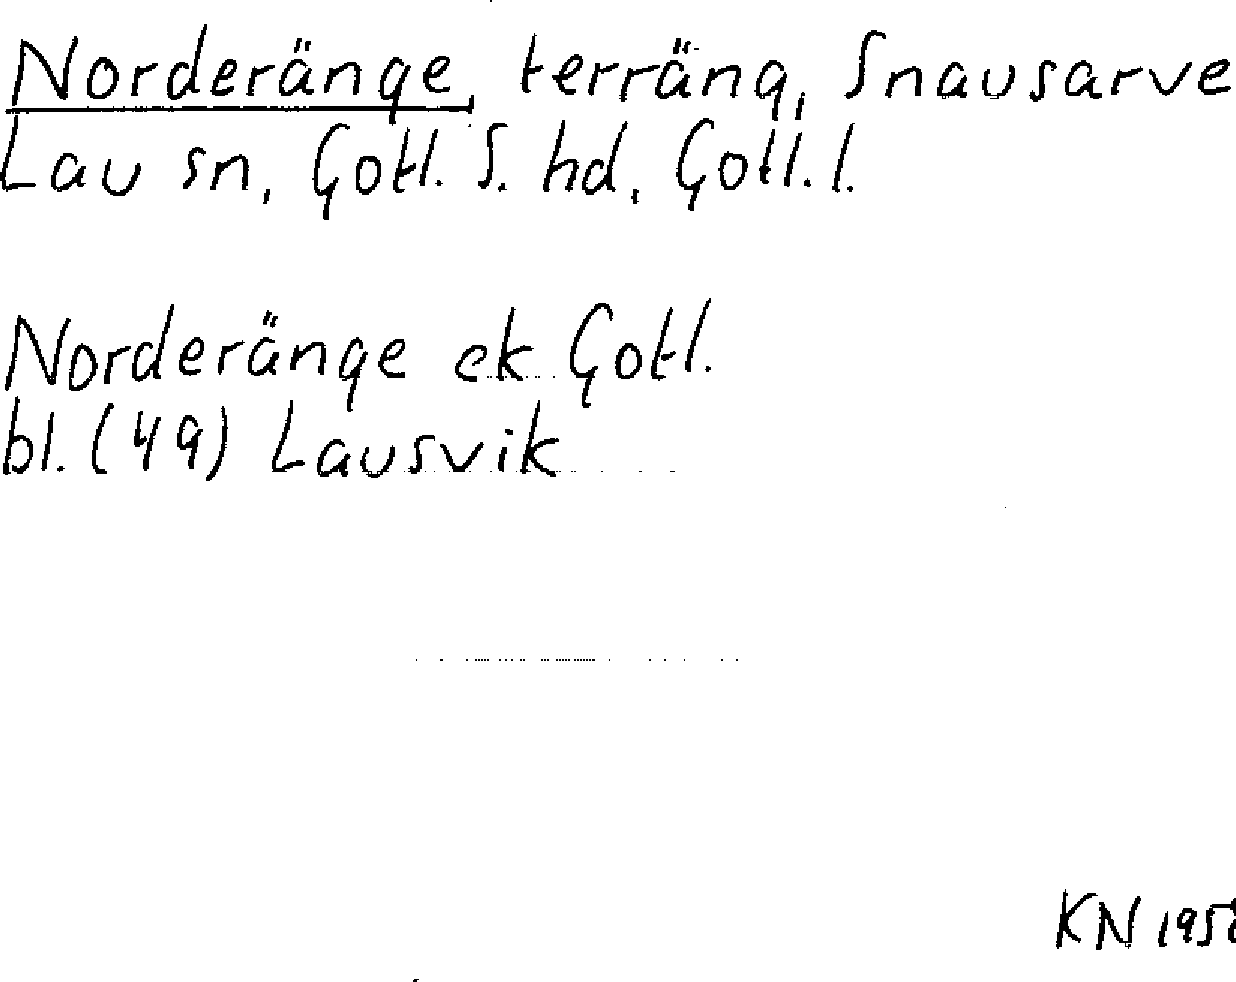 Norderänge, terräng, Snausarve
Lau sn, Gotl. S. hd, Gotl. l.
Norderänge ek Gotl.
bl. (49) Lausvik
KN